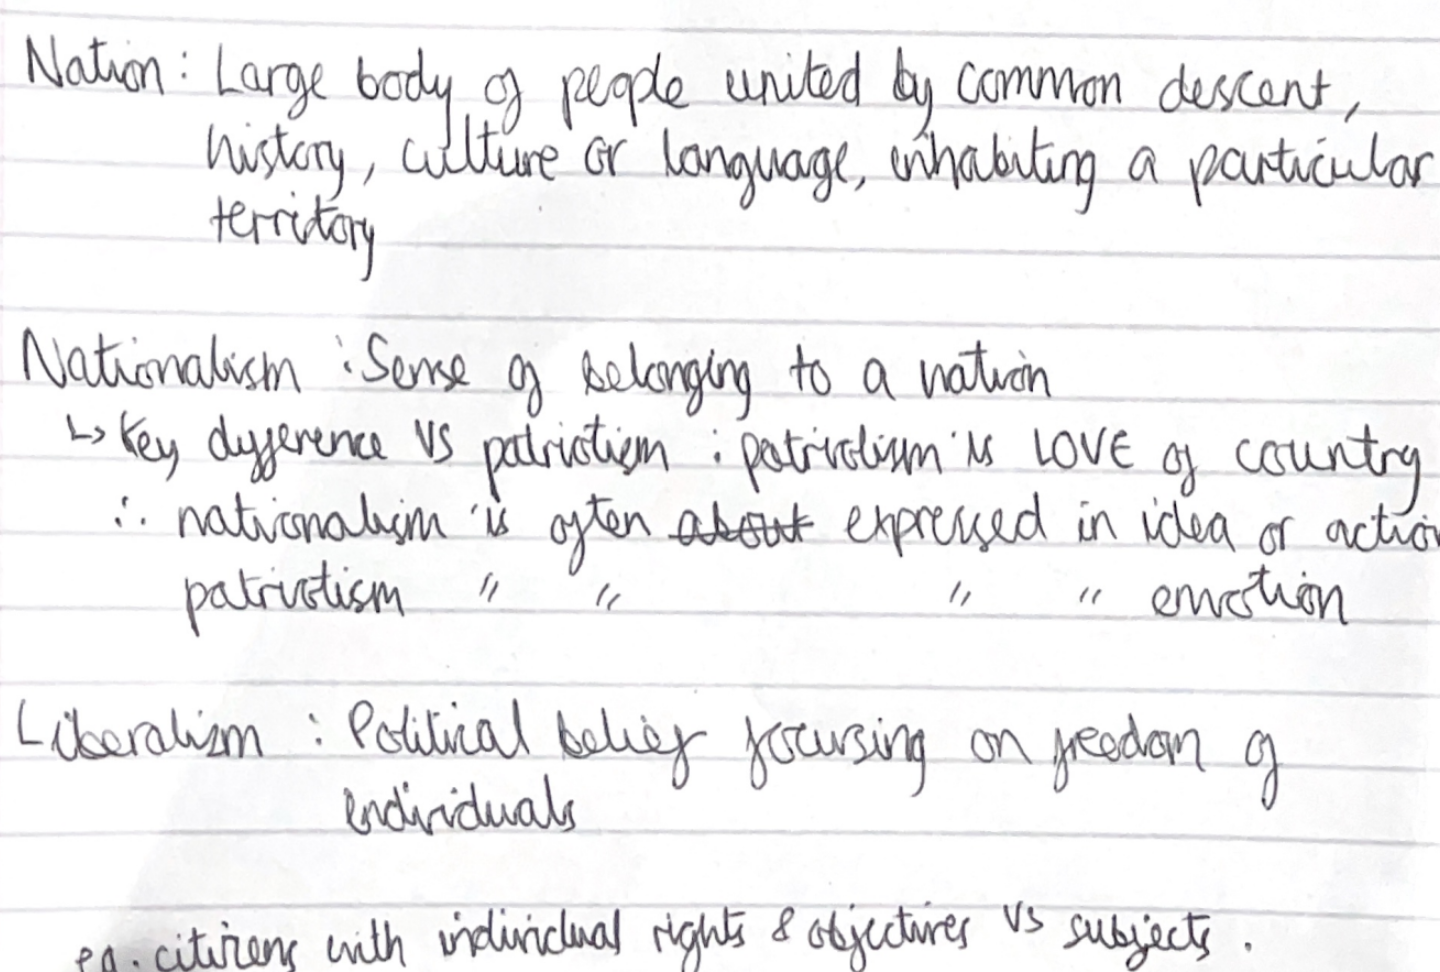 Nation : Large body of people united by common descent,
history, culture or language, inhabiting a particular
territory
Nationalism : Sense of belonging to a nation
↳ Key difference VS patriotism : patriotism is LOVE of country
∴ nationalism is often about expressed in idea or action
patriotism " " " " emotion
Liberalism : Political belief focusing on freedom of
individuals
eg. citizens with individual rights & objectives VS subjects.